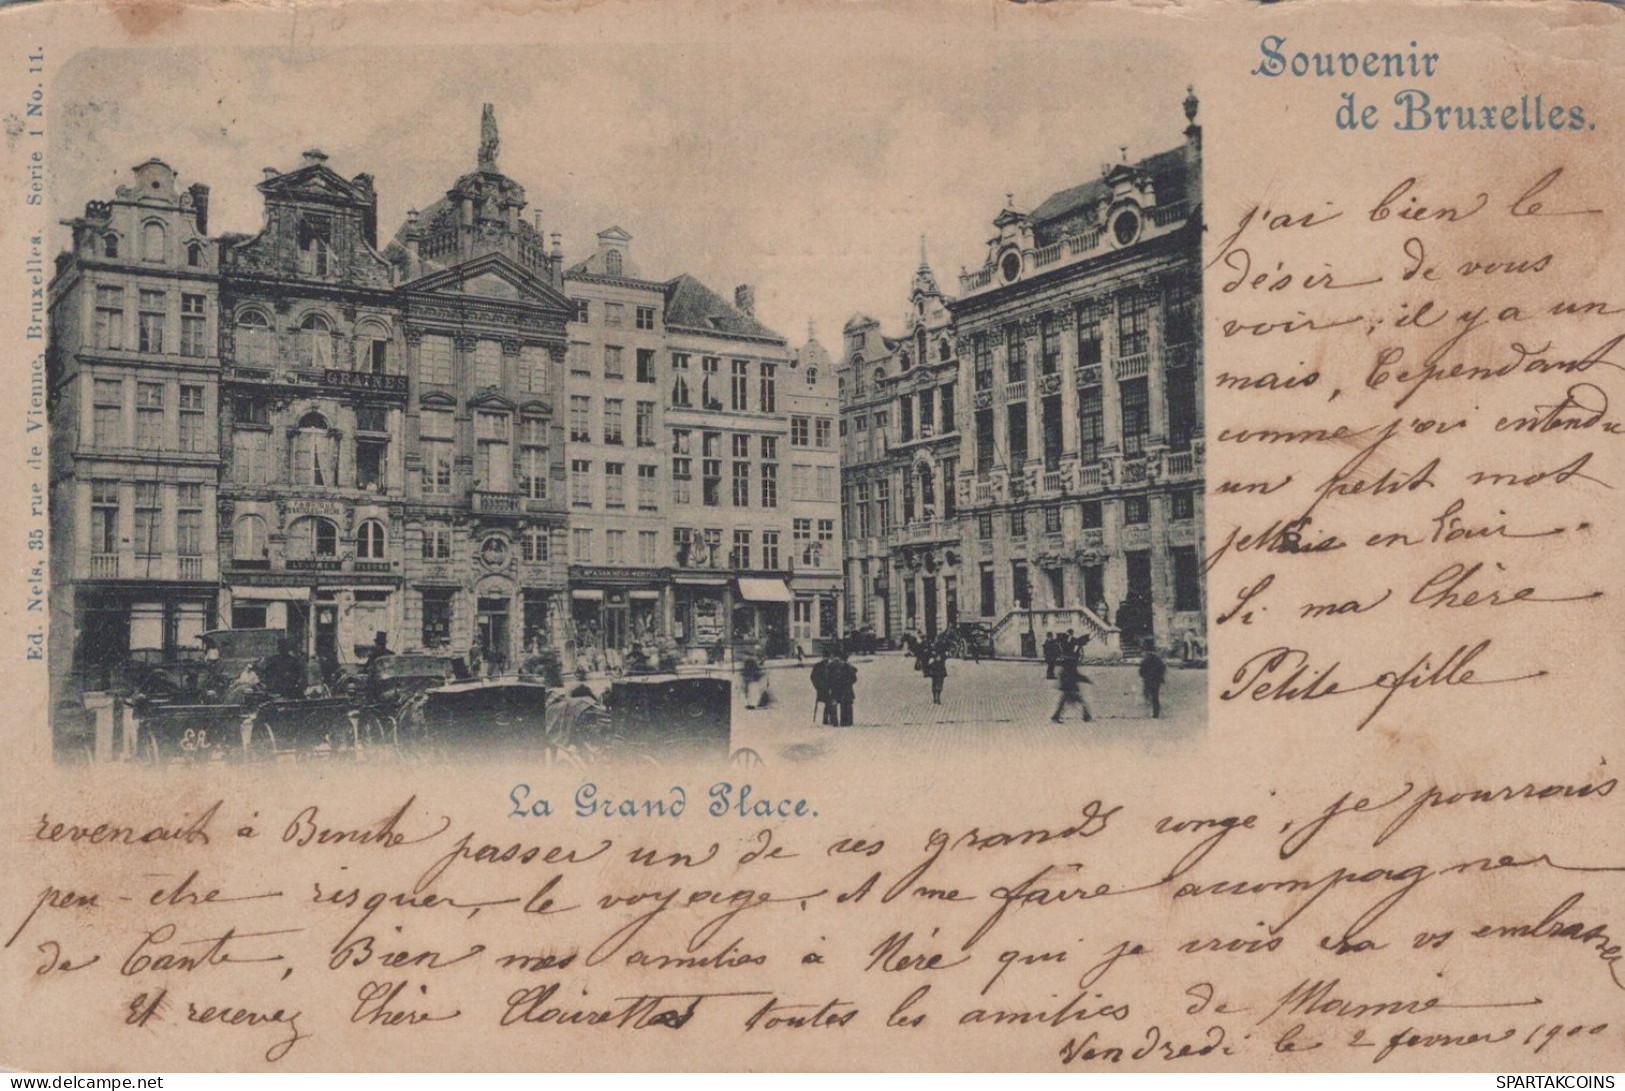 Souvenir
de Bruxelles.
Ed. Nels, 35 rue de Vienne, Bruxelles. Serie 1 No. 11.
GRAINES
EA
La Grand Place.
j'ai bien le
désir de vous
voir, il y a un
mais, Cependant
comme j'ai entendu
un petit mot
jettais en l'air
Si ma Chère
Petite fille
revenait à Binche passer un de ces grands congé, je pourrais
peu-être risquer, le voyage, et me faire accompagner
de Tante, Bien mes amitiés à Méré qui je crois ira vs embrasser
Et recevez Chère Clairette toutes les amitiés de Mamie
Vendredi le 2 fevrier 1900
DELCAMPE.NET
SPARTAKCOINS